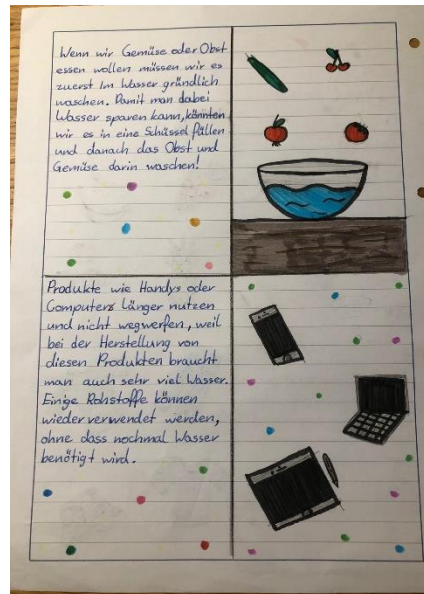 Wenn wir Gemüse oder Obst
essen wollen müssen wir es
zuerst im Wasser gründlich
waschen. Damit man dabei
Wasser sparen kann, könnten
wir es in eine Schüssel füllen
und danach das Obst und
Gemüse darin waschen!
Produkte wie Handys oder
Computers länger nutzen
und nicht wegwerfen, weil
bei der Herstellung von
diesen Produkten braucht
man auch sehr viel Wasser.
Einige Rohstoffe können
wieder verwendet werden,
ohne dass nochmal Wasser
benötigt wird.